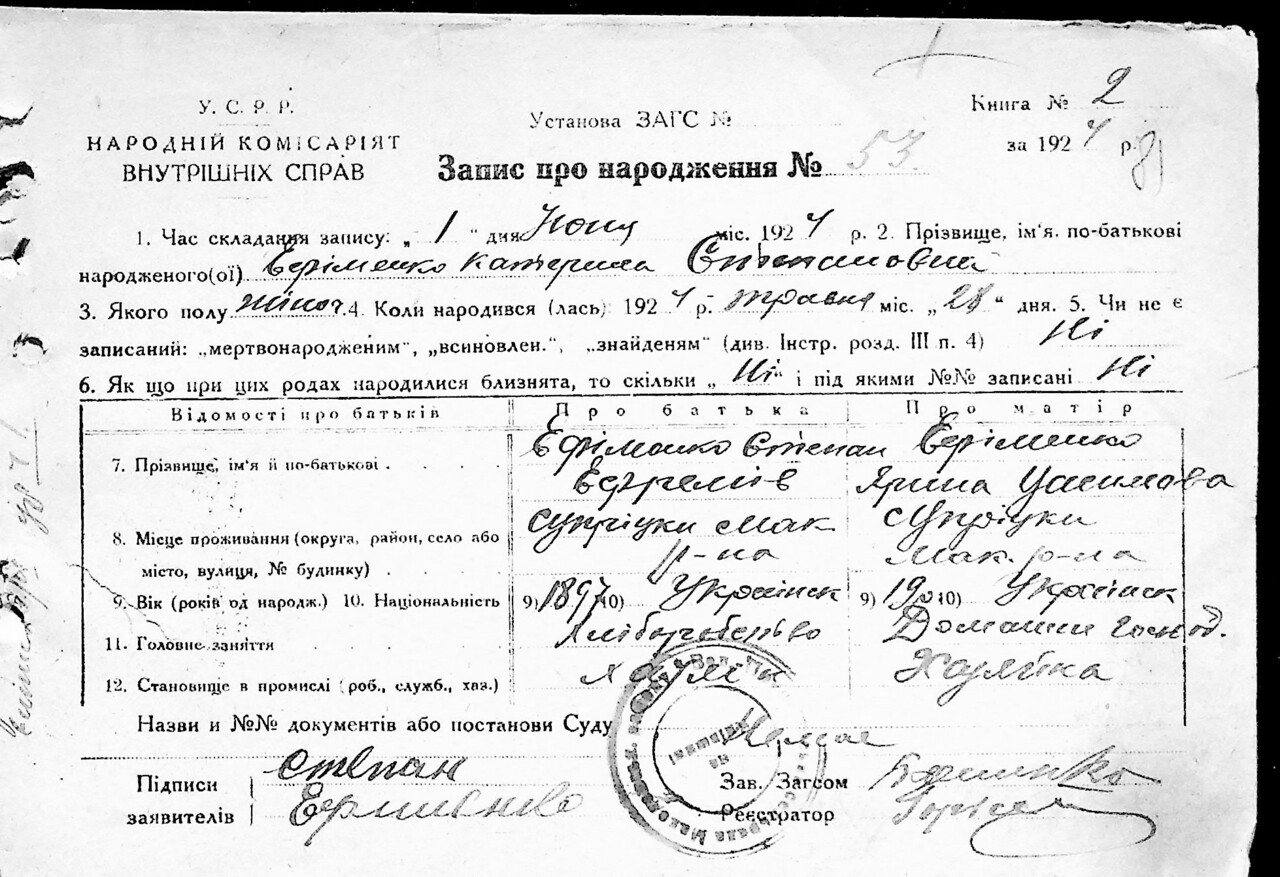 У. С. Р. Р.
НАРОДНІЙ КОМІСАРІЯТ
ВНУТРІШНІХ СПРАВ
Установа ЗАГС №
Книга № 2
за 1924 р.
Запис про народження № 53.
1. Час складання запису: „ 1 " дня Июня міс. 1924 р. 2. Прізвище, ім'я, по-батькові
народженого(ої) Єфіменко Катерина Степановна
3. Якого полу жіноч. 4. Коли народився (лась) 1924 р. травня міс. „ 28 " дня. 5. Чи не є
записаний: „мертвонародженим", „всиновлен.", „знайденям" (див. Інстр. розд. III п. 4) Ні
6. Як що при цих родах народилися близнята, то скільки „ Ні " і під якими №№ записані Ні
Відомості про батьків Про батька Про матір
7. Прізвище, ім'я й по-батькові Ефіменко Степан Ефіменко
Ефремів Ярина
8. Місце проживання (округа, район, село або Мак
місто, вулиця, № будинку) р-на Мак. р-на
9. Вік (років од народж.) 10. Національність 9) 1897 10) Українск 9) 10) Українск
11. Головне заняття Хліборобство Домашн господ.
12. Становище в промислі (роб., служб., хаз.) Хазяйка
Назви и №№ документів або постанови Суду Немає
Підписи
заявителів
Степан
Зав. Загсом
Реєстратор